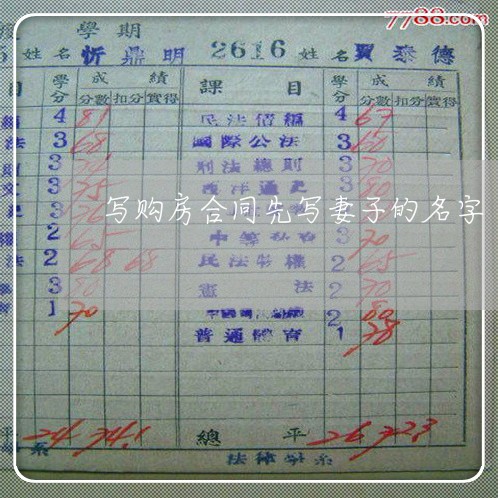 7788.com
學期
姓名 忻鼎明 2616 姓名 賈泰德
目 學分 成績 課目 學分 成績
分數 扣分 實得 分數 扣分 實得
4 81 民法債編 4 67
法 3 68 國際公法 3 60
3 刑法總則 3 70
3 75 西洋通史 3 80
写购房合同先写妻子的名字
2 65 3 70
法 2 68 68 民法物權 2 65
3 80 憲法 2 70
1 70 2 80
普通體育 1 78
平 24 74.1 總平 26 72.3
系 法律學系